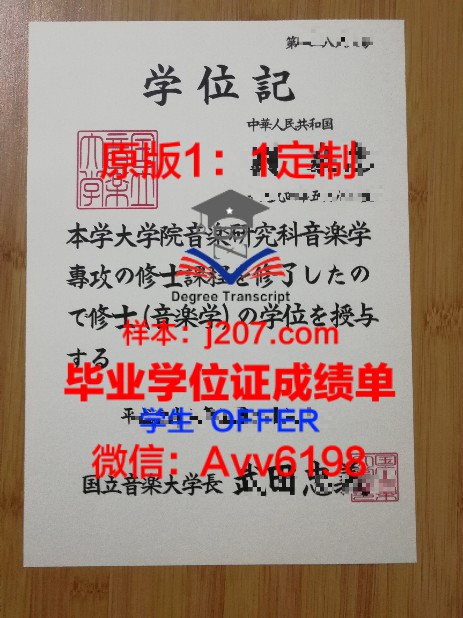 学位記
中華人民共和国
原版1：1定制
本学大学院音楽研究科音楽学
専攻の修士課程を修了したの
Degree Transcript
で修士(音楽学)の学位を授与
样本：j207.com
する
毕业学位证成绩单
学生 OFFER
微信：Avv6198
国立音楽大学長 武田忠義